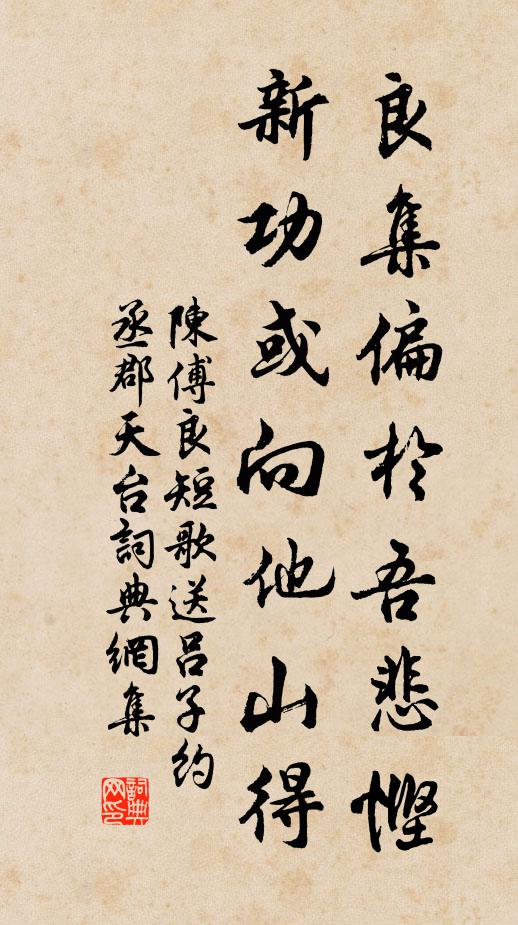 良集偏於吾悲慳
新功或向他山得
陳傅良短歌送呂子约
丞郡天台詞典網集
詞典
网印